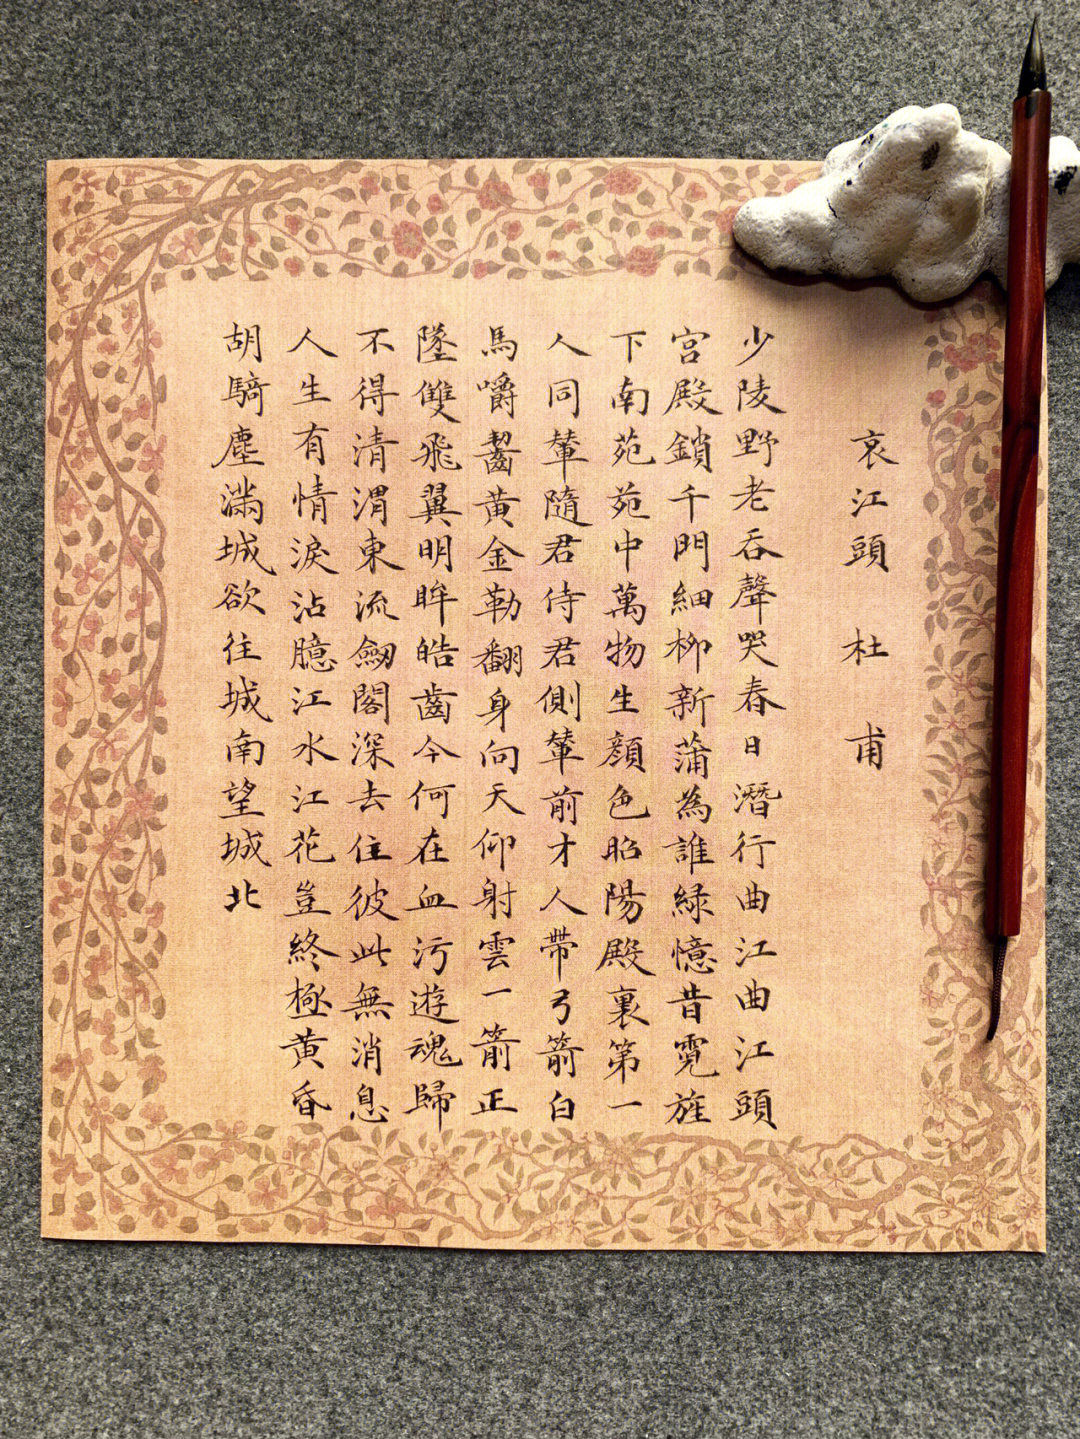 哀江頭 杜甫
少陵野老吞聲哭春日潛行曲江曲江頭
宮殿鎖千門細柳新蒲為誰緑憶昔霓旌
下南苑苑中萬物生顏色昭陽殿裏第一
人同輦隨君侍君側輦前才人帶弓箭白
馬嚼齧黃金勒翻身向天仰射雲一箭正
墜雙飛翼明眸皓齒今何在血污遊魂歸
不得清渭東流劒閣深去住彼此無消息
人生有情淚沾臆江水江花豈終極黃昏
胡騎塵滿城欲往城南望城北